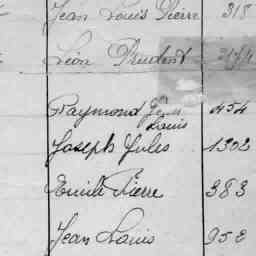 Jean Louis Pierre 318
Léon Prudent
Raymond Jean
Louis 454
Joseph Jules 1302
Emile Pierre 383
Jean Louis 952